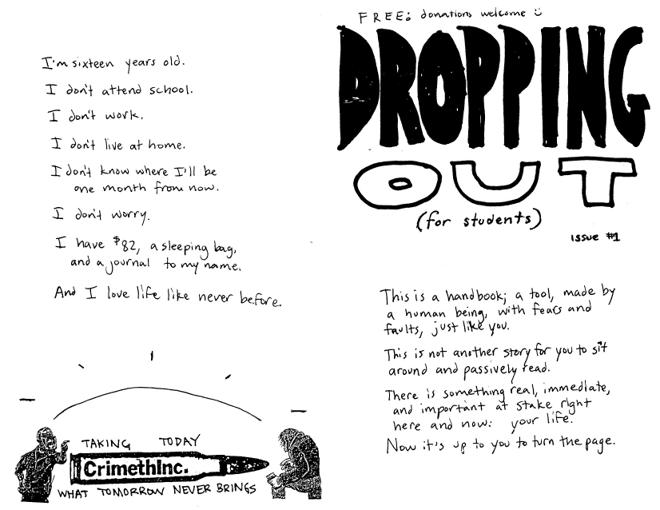 I'm sixteen years old.
I don't attend school.
I don't work.
I don't live at home.
I don't know where I'll be
one month from now.
I don't worry.
I have $82, a sleeping bag,
and a journal to my name.
And I love life like never before.
TAKING TODAY
CrimethInc.
WHAT TOMORROW NEVER BRINGS
FREE: donations welcome :)
DROPPING
OUT
(for students)
ISSUE #1
This is a handbook; a tool, made by
a human being, with fears and
faults, just like you.
This is not another story for you to sit
around and passively read.
There is something real, immediate,
and important at stake right
here and now: your life.
Now it's up to you to turn the page.